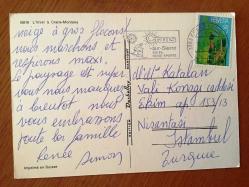 6818 L'hiver à Crans-Montana
neige à gros flocons
nous marchons et
respirons maxi.
le paysage est super
vous nous manquez
à bientôt nous
vous embrassons
toute la famille
Renée Simon
Imprimé en Suisse
HELVETIA
Katalan
Vali Konağı caddesi
Ekim ap 153/13
Nişantaşı
Istambul
Turquie